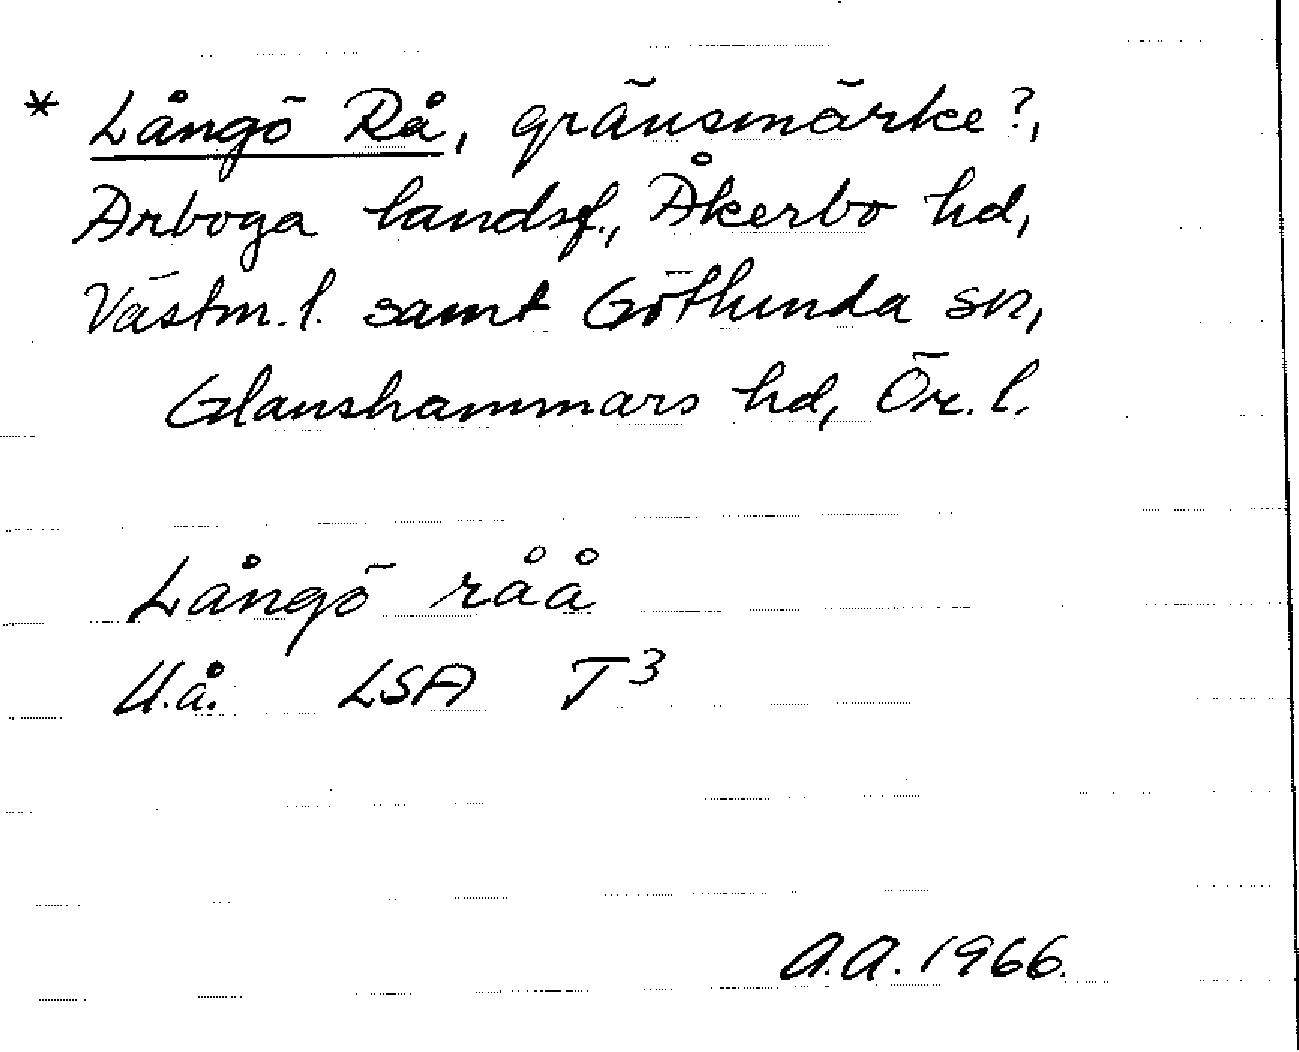 * Långö Rå, gränsmärke?,
Arboga landsf., Åkerbo hd,
Västm. l. samt Götlunda sn,
Glanshammars hd, Ör. l.
Långö råå
U.å. LSA T3
A.A. 1966.